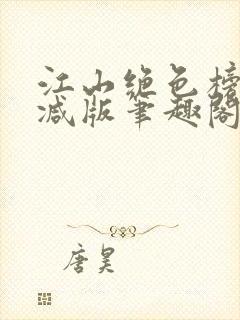 江山绝色榜
减版笔趣阁
唐昊